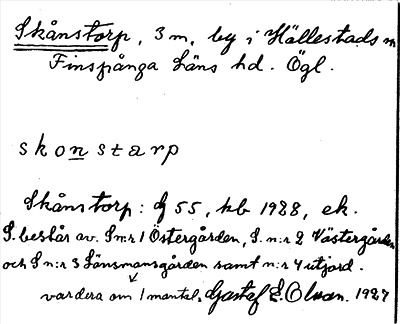 Skånstorp, 3 m, by i Hällestads sn
Finspånga Läns hd. Ögl.
skonstarp
Skånstorp: dj 55, kb 1928, ek.
S. består av. S n:r 1 Östergården, S. n:r 2 Västergården
och S n:r 3 Länsmansgården samt n:r 4 utjord.
vardera om 1 mantal. Gustaf E. Olsson. 1927